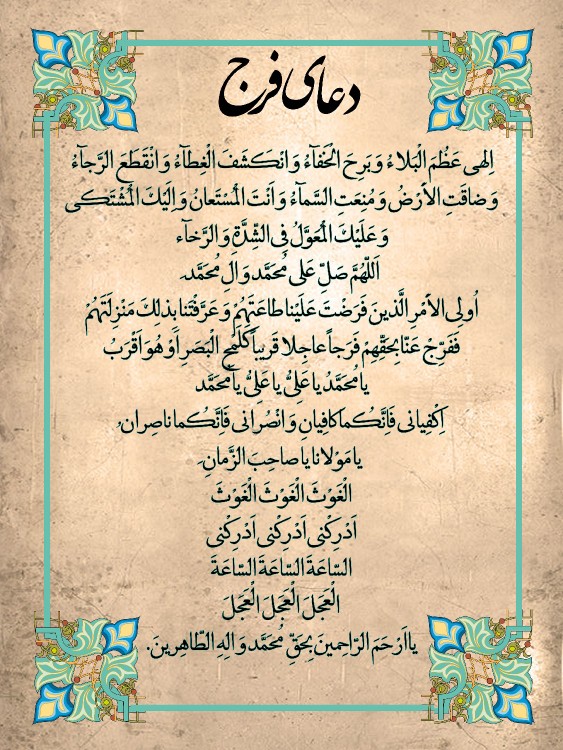 دعای فرج
اِلهی عَظُمَ الْبَلاءُ وَ بَرِحَ الْخَفآءُ وَ انْكَشَفَ الْغِطآءُ وَ انْقَطَعَ الرَّجآءُ
وَ ضاقَتِ الاَرْضُ وَ مُنِعَتِ السَّمآءُ وَ اَنْتَ الْمُسْتَعانُ وَ اِلَیْكَ الْمُشْتَكی
وَ عَلَیْكَ الْمُعَوَّلُ فِی الشِّدَّةِ وَ الرَّخآء
اَللّهُمَّ صَلِّ عَلی مُحَمَّد وَ الِ مُحَمَّد.
اُولِی الاَمْرِ الَّذینَ فَرَضْتَ عَلَیْنا طاعَتَهُمْ وَ عَرَّفْتَنا بِذلِكَ مَنْزِلَتَهُمْ
فَفَرِّجْ عَنّا بِحَقِّهِمْ فَرَجاً عاجِلا قَریباً كَلَمْحِ الْبَصَرِ اَوْ هُوَ اَقْرَبُ
یا مُحَمَّدُ یا عَلِیُّ یا عَلِیُّ یا مُحَمَّد
اِكْفِیانی فَاِنَّكُما كافِیانِ وَ انْصُرانی فَاِنَّكُما ناصِرانِ.
یا مَوْلانا یا صاحِبَ الزَّمانِ.
الْغَوْثَ الْغَوْثَ الْغَوْثَ
اَدْرِكْنی اَدْرِكْنی اَدْرِكْنی
السّاعَةَ السّاعَةَ السّاعَةَ
الْعَجَلَ الْعَجَلَ الْعَجَلَ
یا اَرْحَمَ الرّاحِمینَ بِحَقِّ مُحَمَّد وَ الِهِ الطّاهِرینَ.